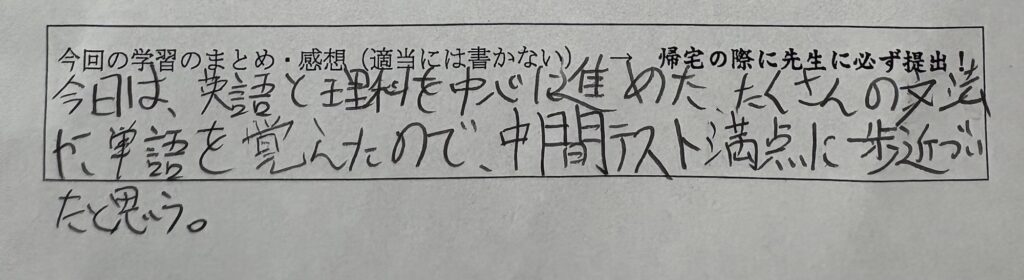 今回の学習のまとめ・感想（適当には書かない） → 帰宅の際に先生に必ず提出！
今日は、英語と理科を中心に進めた、たくさんの文法
や、単語を覚えたので、中間テスト満点に一歩近づい
たと思う。